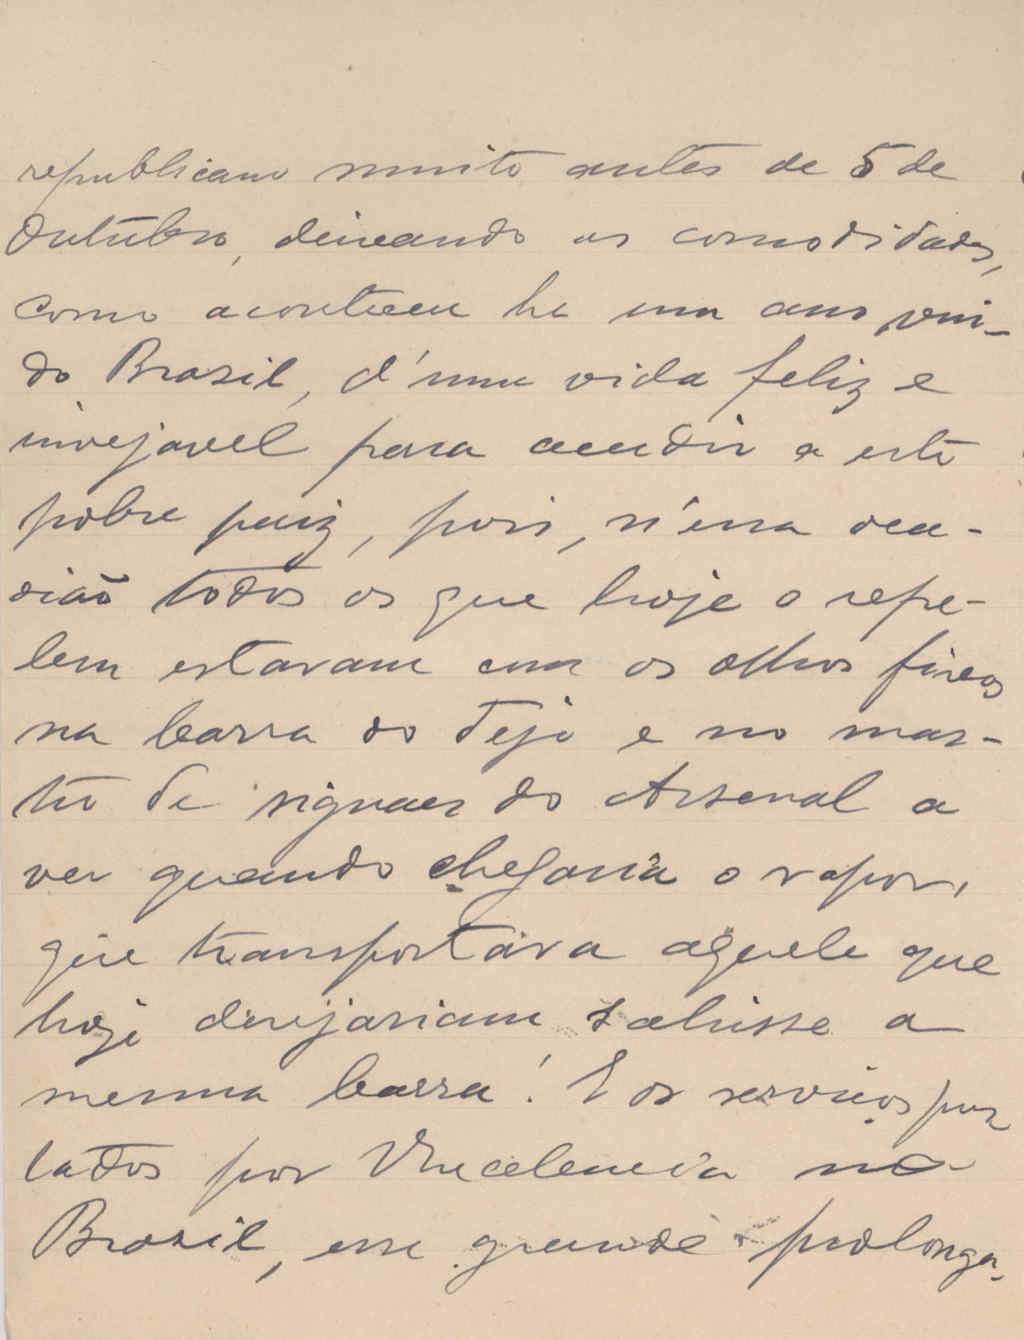 republicano muito antes de 5 de
Outubro, deixando as comodidades,
como aconteceu ha um ano,
do Brazil, d'uma vida feliz e
invejavel para acudir a este
pobre paiz, pois, n'essa oca-
sião todos os que hoje o repe-
lem estavam com os olhos fixos
na barra do Tejo e no mas-
tro de signaes do Arsenal a
ver quando chegaria o vapor,
que transportava aquele que
hoje desejariam sahisse a
mesma barra! E os serviços pres
tados por Vxcelencia no
Brazil, esse grande prolonga-